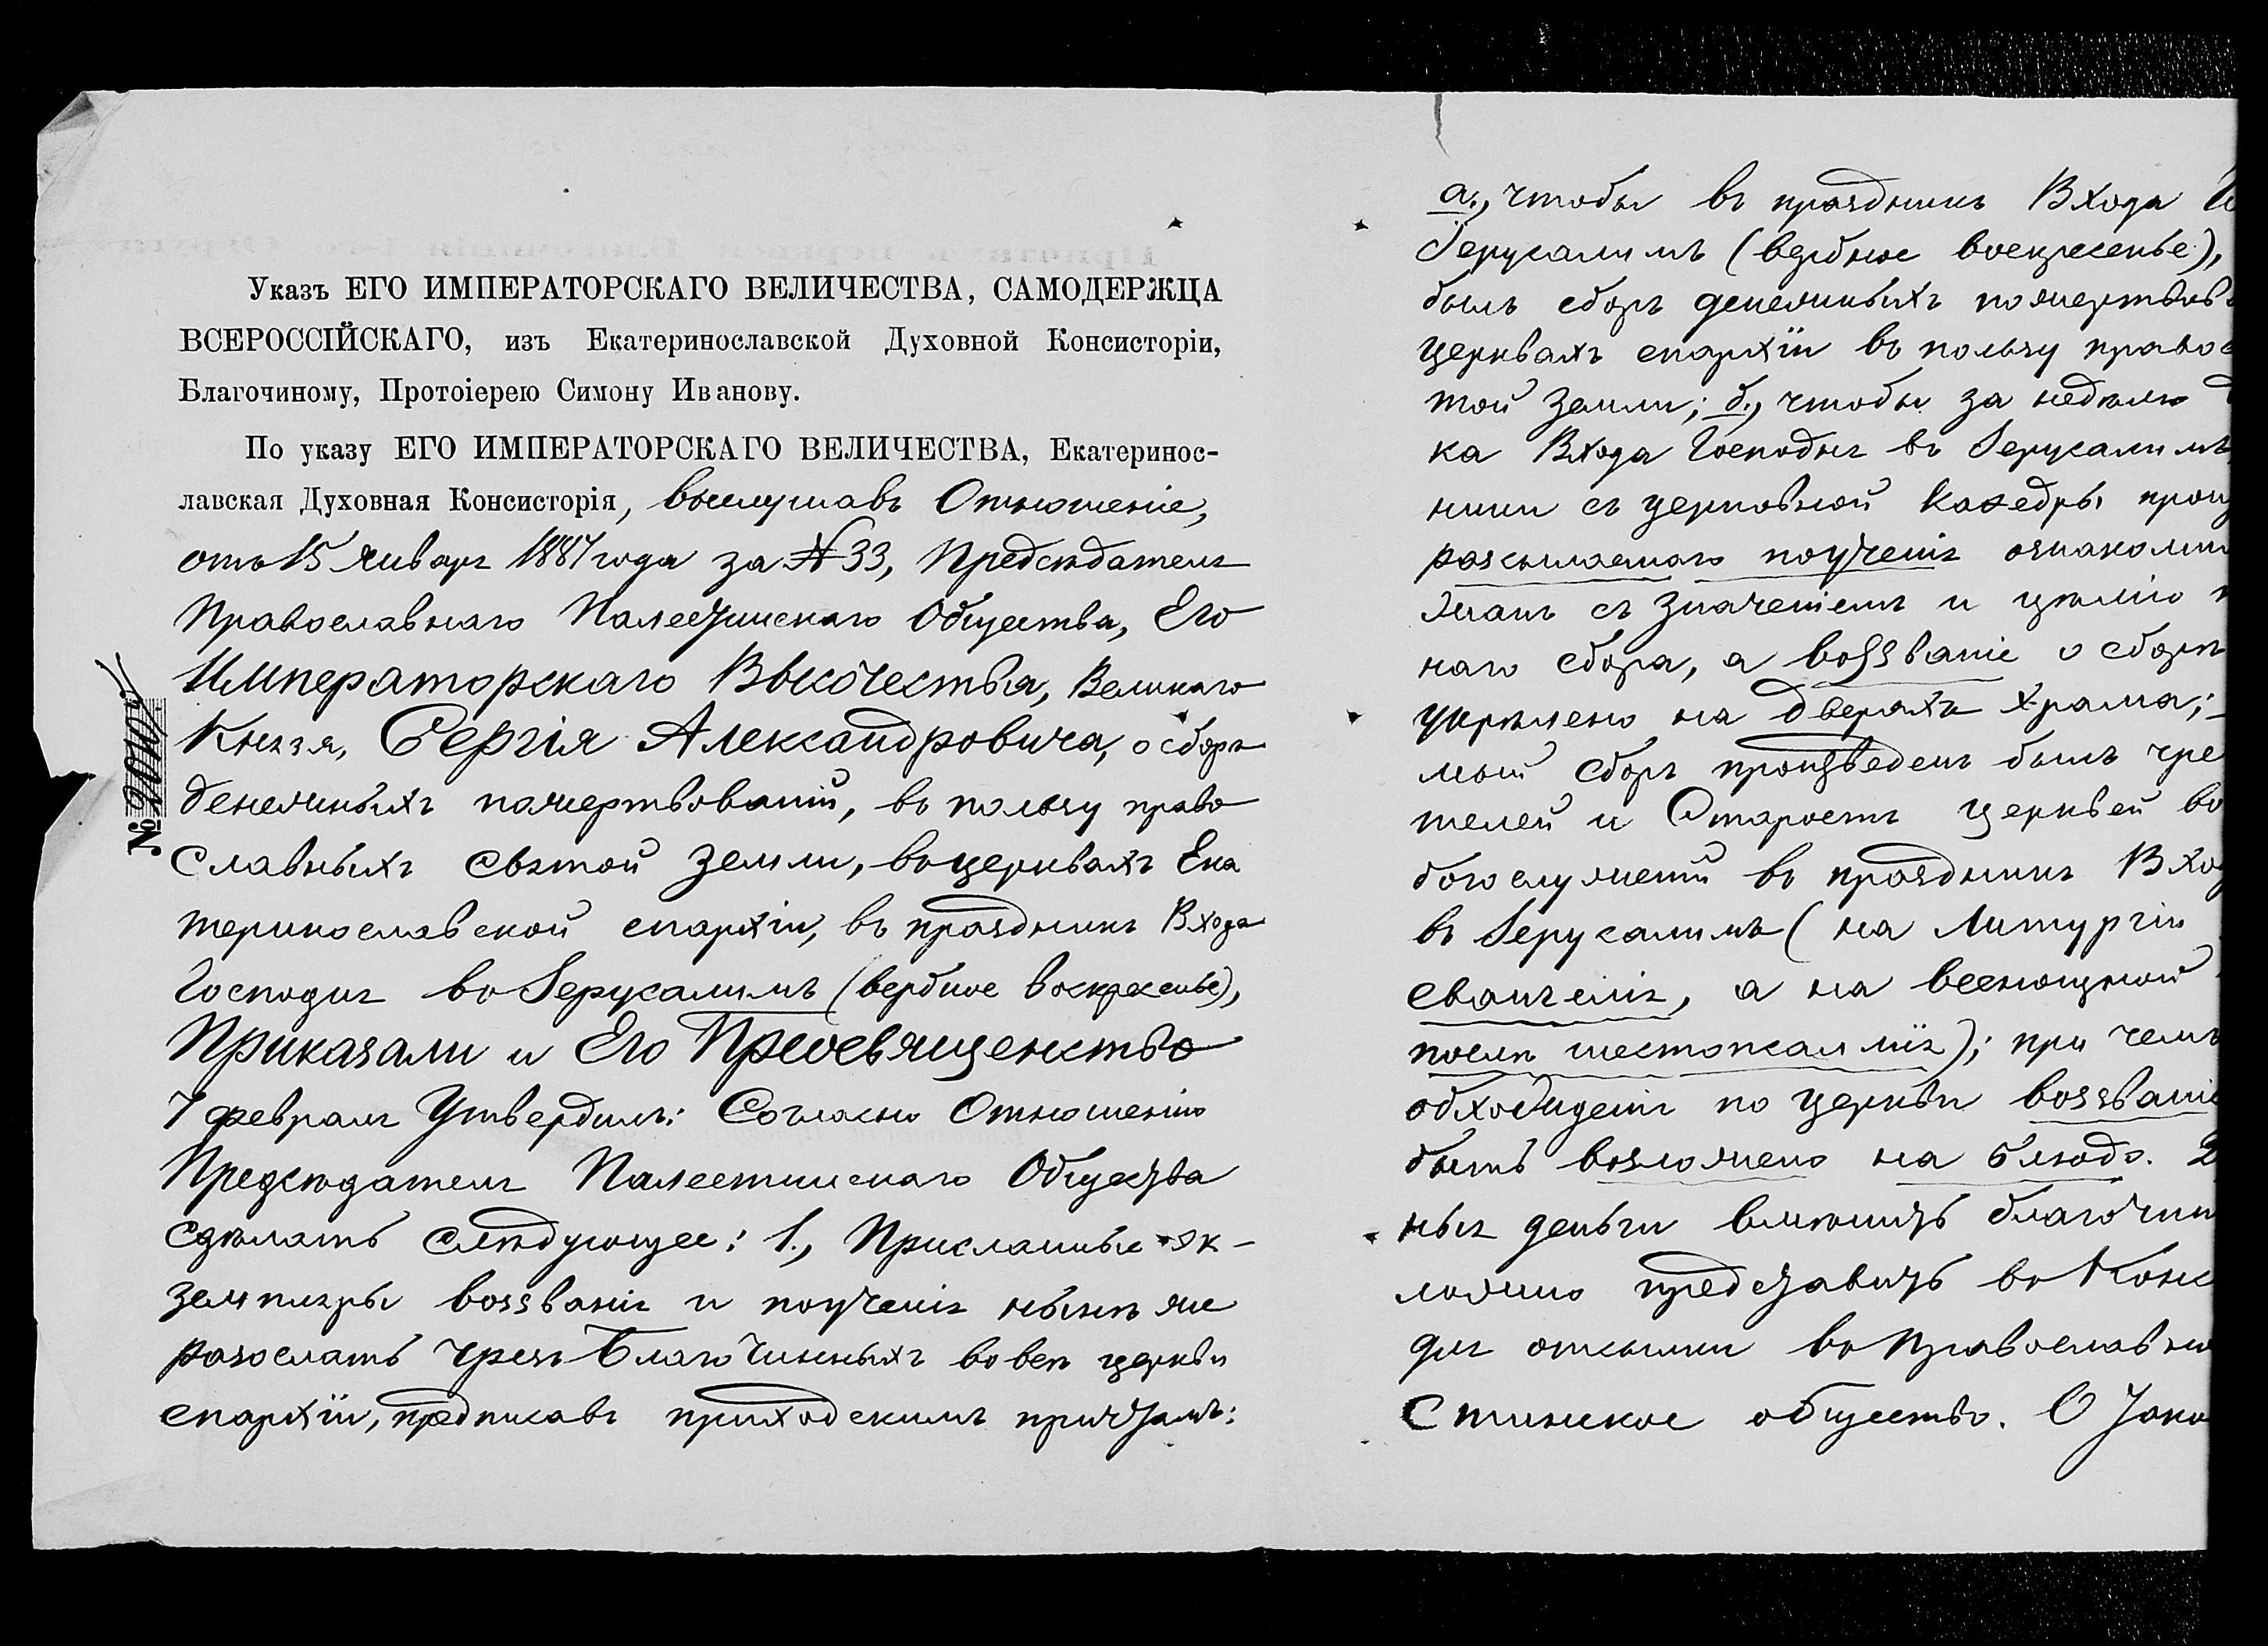 Указъ ЕГО ИМПЕРАТОРСКАГО ВЕЛИЧЕСТВА, САМОДЕРЖЦА
ВСЕРОССІЙСКАГО, изъ Екатеринославской Духовной Консисторіи,
Благочиному, Протоіерею Симону Иванову.
По указу ЕГО ИМПЕРАТОРСКАГО ВЕЛИЧЕСТВА, Екатеринос-
лавская Духовная Консисторія, выслушавъ Отношеніе,
отъ 15 Января 1887 года за № 33, Председателя
Православнаго Палестинскаго Общества, Его
Императорскаго Высочества, Великаго
Князя, Сергія Александровича, о сборѣ
денежныхъ пожертвованій, въ пользу право
славныхъ Святой Земли, въ церквахъ Ека
теринославской епархіи, въ праздникъ Входа
Господня во Іерусалимъ (вербное воскресенье),
Приказали и Его Преосвященство
7 февраля Утвердилъ: Согласно Отношенію
Предсѣдателя Палестинскаго Общества
сдѣлать слѣдующее: 1., Присланные эк-
земпляры воззванія и поученія нынѣ же
разослать чрезъ Благочинныхъ во всѣ церкви
епархіи, предписавъ приходскимъ причтамъ:
№
а., чтобы въ праздникъ Входа
Іерусалимъ (вербное воскресенье),
былъ сборъ денежныхъ пожертвов
церквахъ епархіи въ пользу правос
той Земли; б., чтобы за недѣлю
ка Входа Господня въ Іерусалимъ
ники съ церковной каѳедры
разсылаемаго поученія ознакомили
жанъ съ значеніемъ и цѣлію
наго сбора, а воззваніе о сборѣ
укрѣплено на дверяхъ храма;
мый сборъ произведенъ былъ чре
телей и Старостъ церквей во
богослуженій въ праздникъ Вход
въ Іерусалимъ (на Литургіи
евангелія, а на всенощной
послѣ шестопсалмія); при чемъ
обхожденіи по церкви воззваніе
быть возложено на блюдо.
ныя деньги вмѣнить благочин
ложно представить въ Конс
для отсылки въ Православно
стинское общество. О